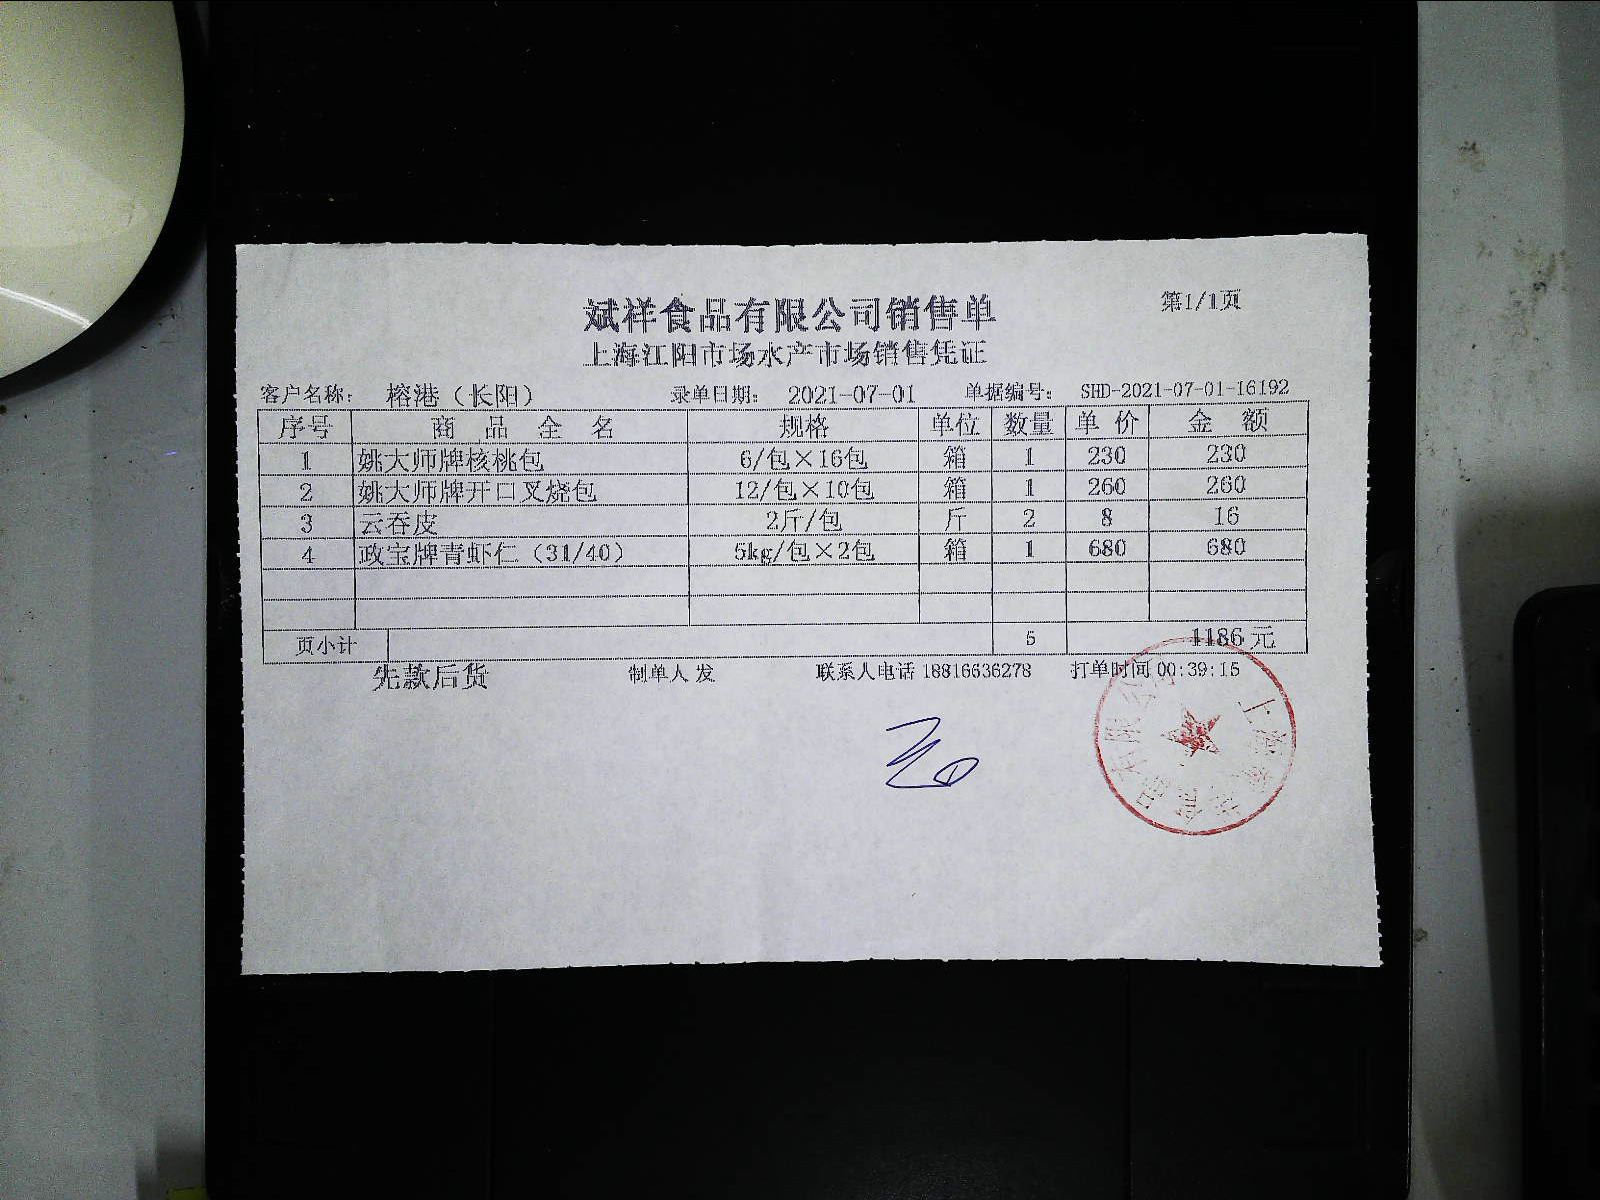 斌祥食品有限公司销售单
第1/1页
上海江阳市场水产市场销售凭证
客户名称： 榕港（长阳） 录单日期： 2021-07-01 单据编号： SHD-2021-07-01-16192
序号 商品全名 规格 单位 数量 单价 金额
1 姚大师牌核桃包 6/包×16包 箱 1 230 230
2 姚大师牌开口叉烧包 12/包×10包 箱 1 260 260
3 云吞皮 2斤/包 斤 2 8 16
4 政宝牌青虾仁（31/40） 5kg/包×2包 箱 1 680 680
页小计 5 1186元
先款后货 制单人 发 联系人电话 18816636278 打单时间 00:39:15
上海 食品有限公